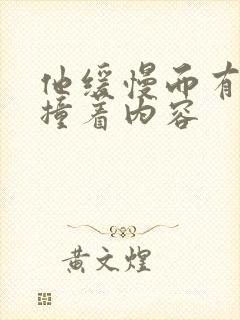 他缓慢而有
撞着内容
黄文煌